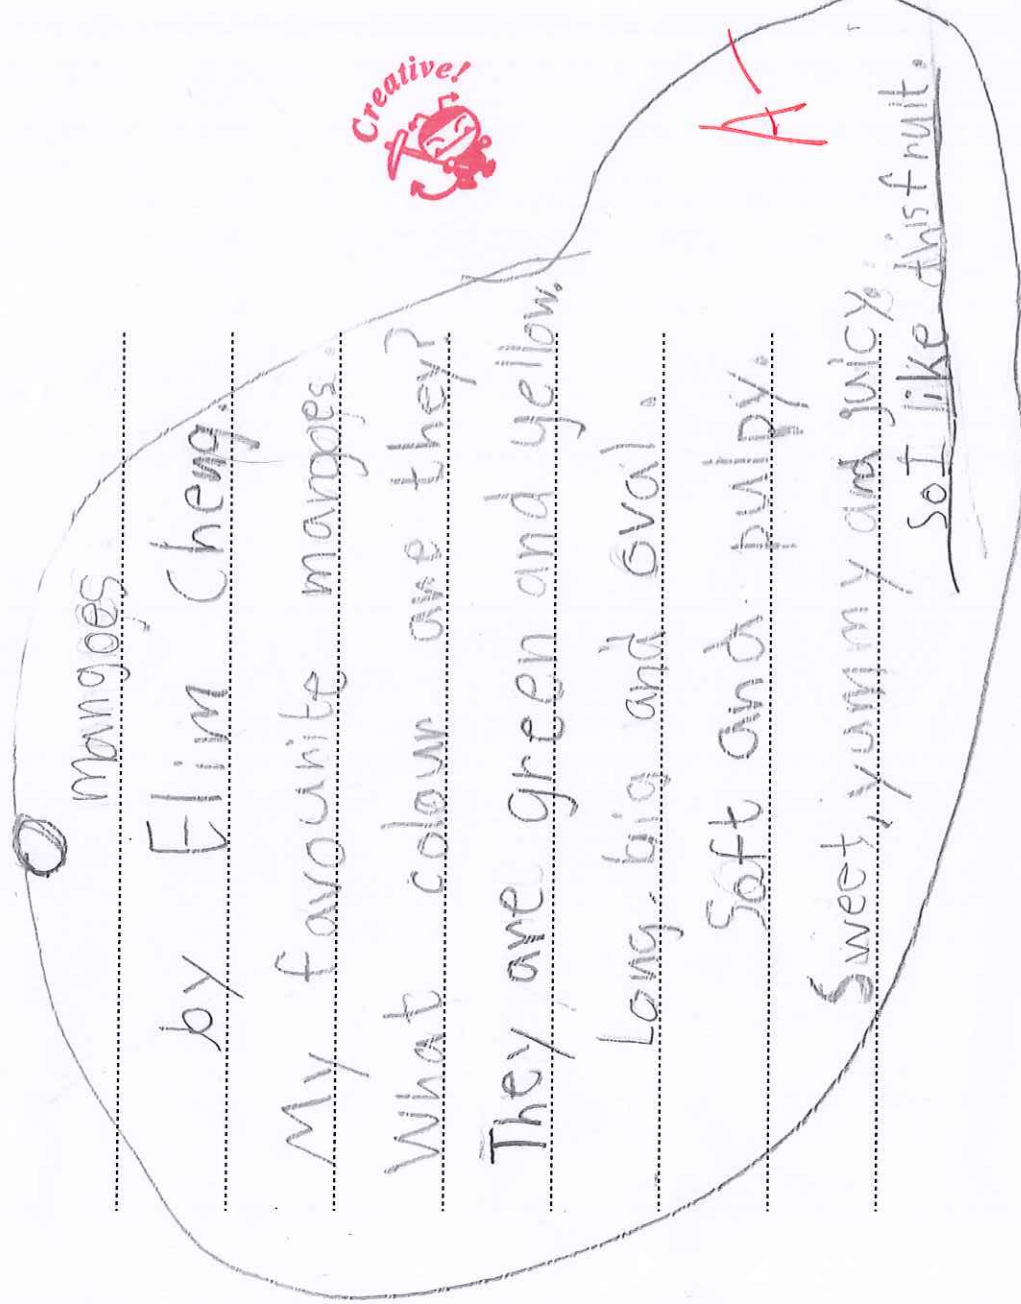 mangoes
by Elim Cheng.
My favourite mangoes.
What colour are they?
They are green and yellow.
Long, big and oval.
Soft and pulpy.
Sweet, yummy and juicy.
so I like this fruit.
Creative!
A-